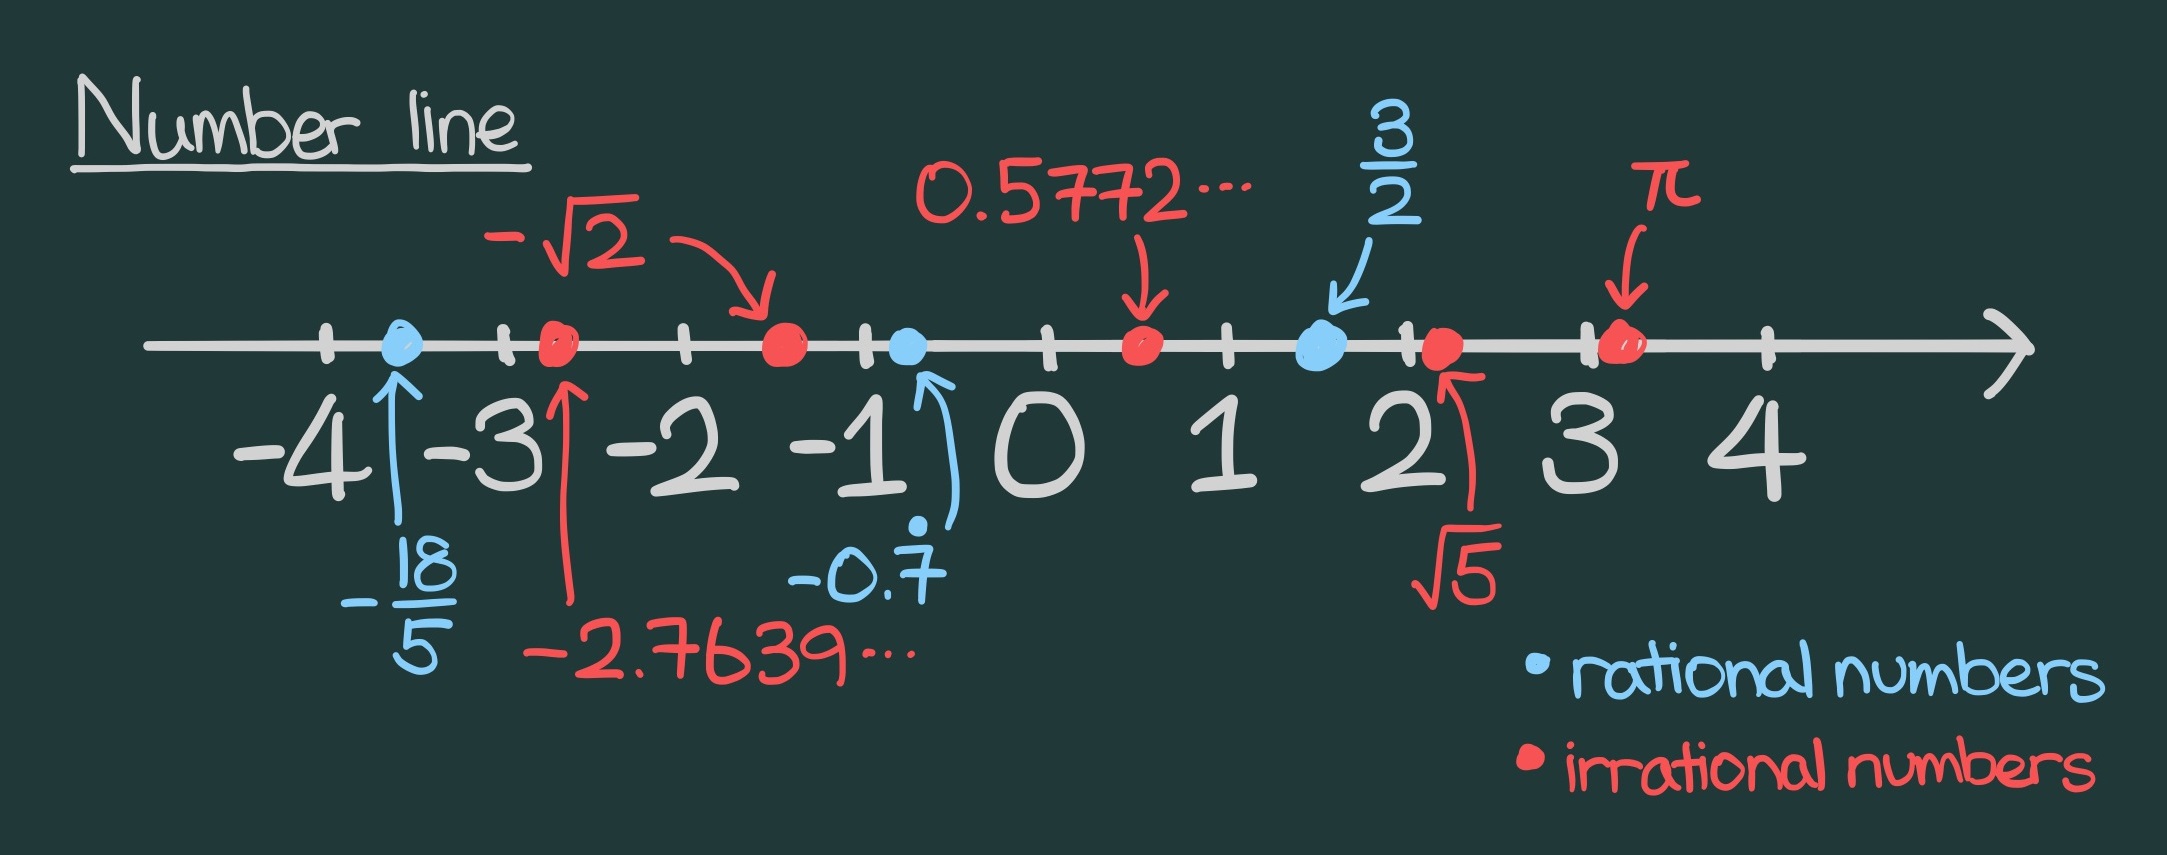 Number line
-√2
0.5772...
3/2
π
-4 -3 -2 -1 0 1 2 3 4
-18/5
-2.7639...
-0.7̇
√5
rational numbers
irrational numbers